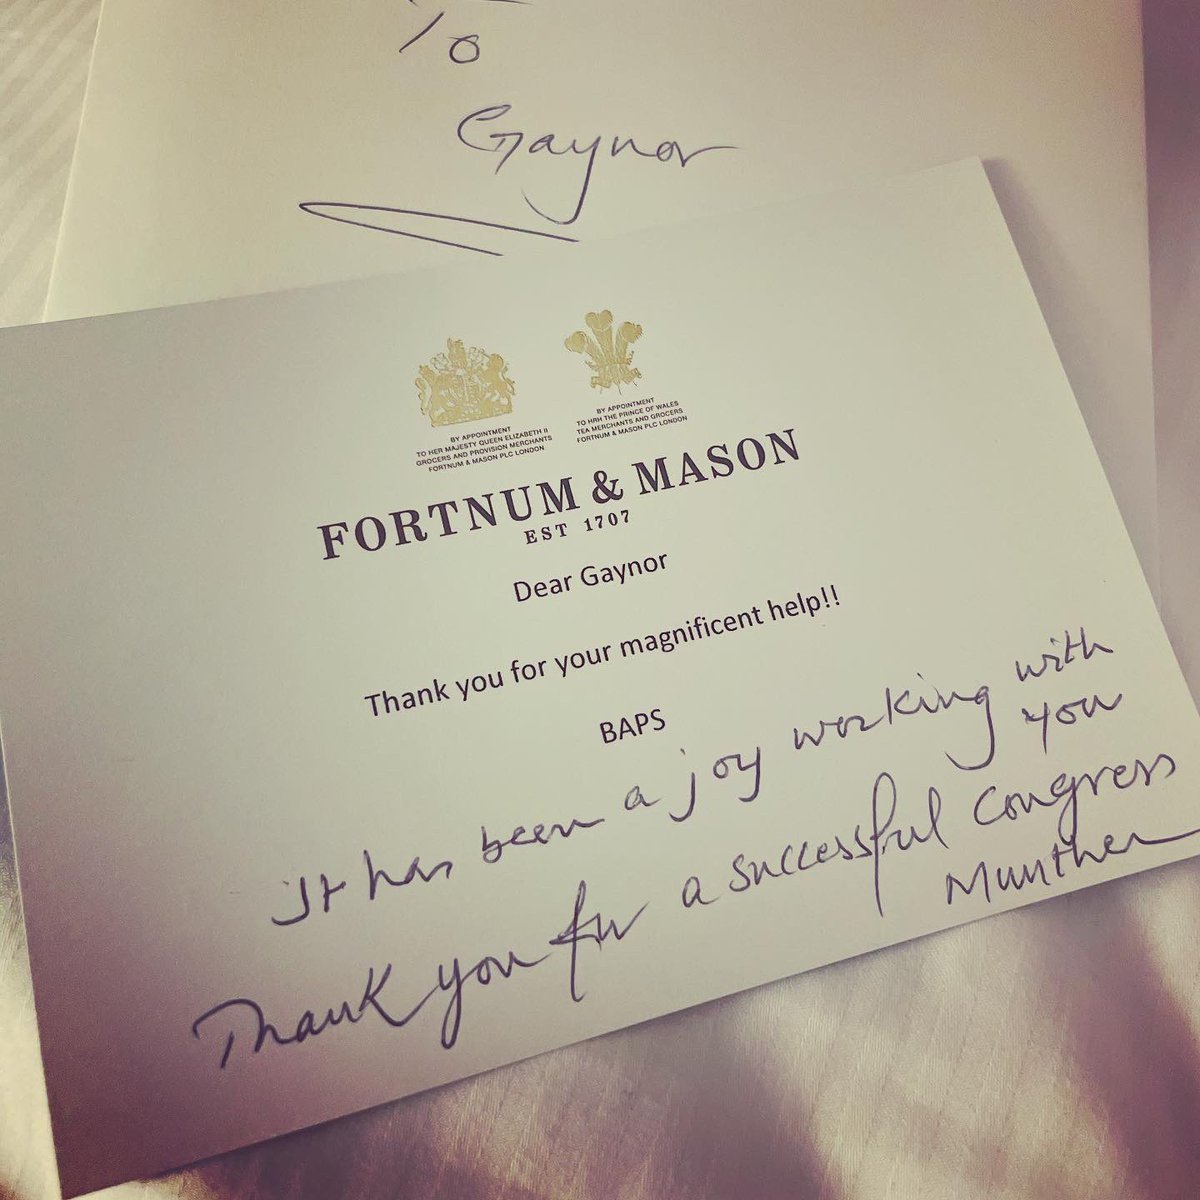 To
Gaynor
BY APPOINTMENT
TO HER MAJESTY QUEEN ELIZABETH II
GROCERS AND PROVISION MERCHANTS
FORTNUM & MASON PLC LONDON
BY APPOINTMENT
TO HRH THE PRINCE OF WALES
TEA MERCHANTS AND GROCERS
FORTNUM & MASON PLC LONDON
FORTNUM & MASON
EST 1707
Dear Gaynor
Thank you for your magnificent help!!
BAPS
It has been a joy working with
you
Thank you for a successful Congress
Munther